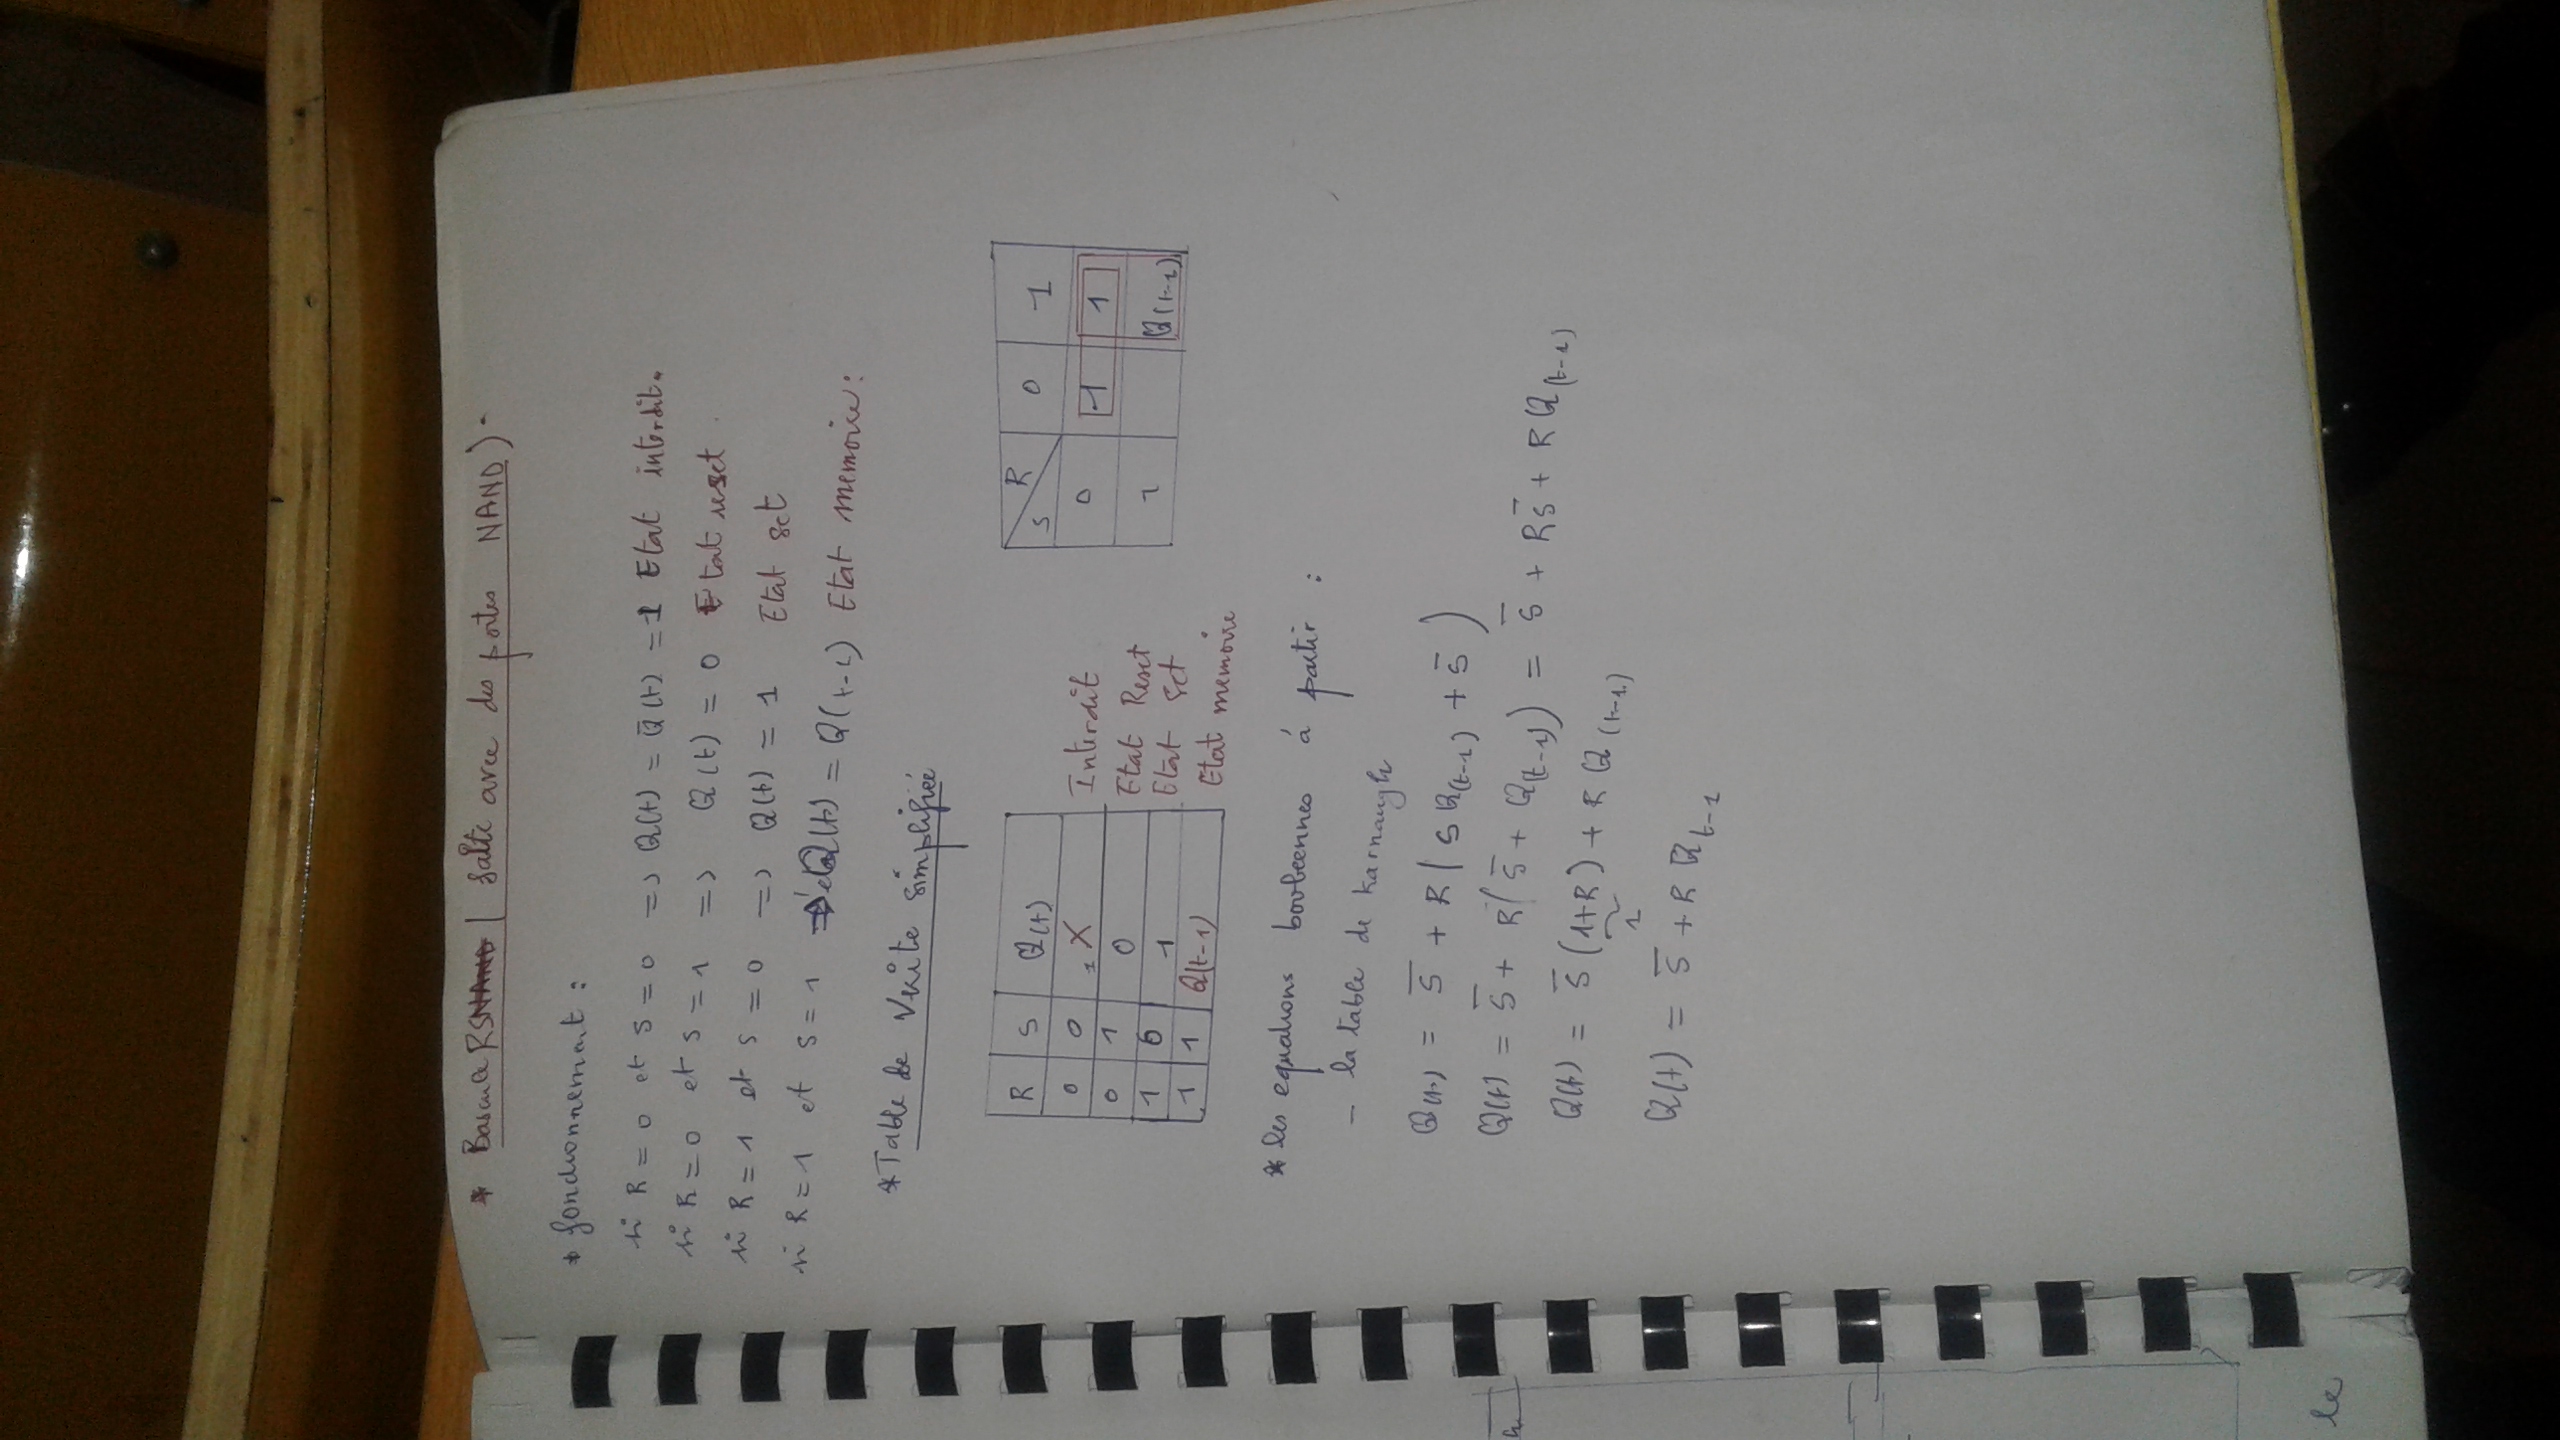 * Bascule RS ( faîte avec des portes NAND ).
* fonctionnement :
si R = 0 et S = 0 => Q(t) = Q̄(t) = 1 Etat interdit.
si R = 0 et S = 1 => Q(t) = 0 Etat reset
si R = 1 et S = 0 => Q(t) = 1 Etat set
si R = 1 et S = 1 => Q(t) = Q(t-1) Etat memoire :
* Table de Verite simplifiée
R S Q(t)
0 0 1 X Interdit
0 1 0 Etat Reset
1 0 1 Etat set
1 1 Q(t-1) Etat memoire
S R 0 1
0 1 1
1 Q(t-1)
* les equations booleennes á partir :
- la table de Karnaugh
Q(t) = S̄ + R ( S Q(t-1) + S̄ )
Q(t) = S̄ + R ( S̄ + Q(t-1) ) = S̄ + R S̄ + R Q(t-1)
Q(t) = S̄ (1+R) + R Q(t-1)
1
Q(t) = S̄ + R Q t-1
le